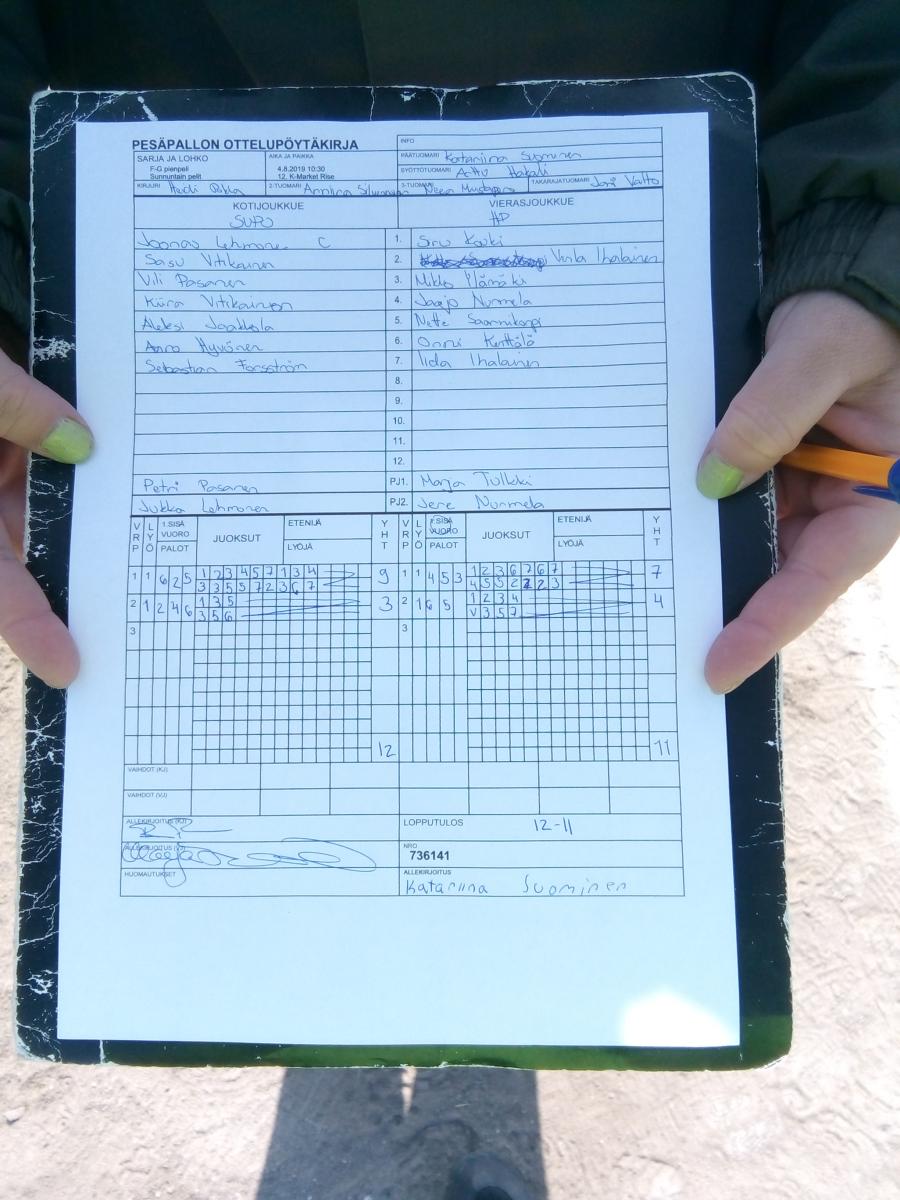 PESÄPALLON OTTELUPÖYTÄKIRJA
INFO
SARJA JA LOHKO
F-G pienpeli
Sunnuntain pelit
AIKA JA PAIKKA
4.8.2019 10:30
12. K-Market Rise
PÄÄTUOMARI Katariina Suominen
SYÖTTÖTUOMARI Arttu Hakali
KIRJURI Heidi
2-TUOMARI Anniina
3-TUOMARI Neea
TAKARAJATUOMARI Joni Valto
KOTIJOUKKUE VIERASJOUKKUE
SUPU HP
Joonas Lehmonen C 1. Siru Kouki
Sasu Vitikainen 2. Venla Ihalainen
Vili Pasanen 3. Mikko Ylämäki
Kiira Vitikainen 4. Jaajo Nurmela
Aleksi Jaakkola 5. Nette Saarnikorpi
Anna Hyvönen 6. Onni Kerttälä
Sebastian Forsström 7. Iida Ihalainen
8.
9.
10.
11.
12.
Petri Pasanen PJ1. Marja Tulkki
Jukka Lehmonen PJ2. Jere Nurmela
VRP LYÖ 1.SISÄ VUORO PALOT JUOKSUT ETENIJÄ LYÖJÄ YHT VRP LYÖ 1.SISÄ VUORO PALOT JUOKSUT ETENIJÄ LYÖJÄ YHT
1 1 6 2 5 1 2 3 4 5 7 1 3 4 9 1 1 4 5 3 1 2 3 6 7 6 7 7
3 3 5 5 7 2 3 6 7 4 5 5 2 2 2 3
2 1 2 4 6 1 3 5 3 2 1 6 5 1 2 3 4 4
3 5 6 V 3 5 7
3 3
12 11
VAIHDOT (KJ)
VAIHDOT (VJ)
ALLEKIRJOITUS (KJ) LOPPUTULOS 12-11
ALLEKIRJOITUS (VJ) NRO
736141
HUOMAUTUKSET ALLEKIRJOITUS
Katariina Suominen